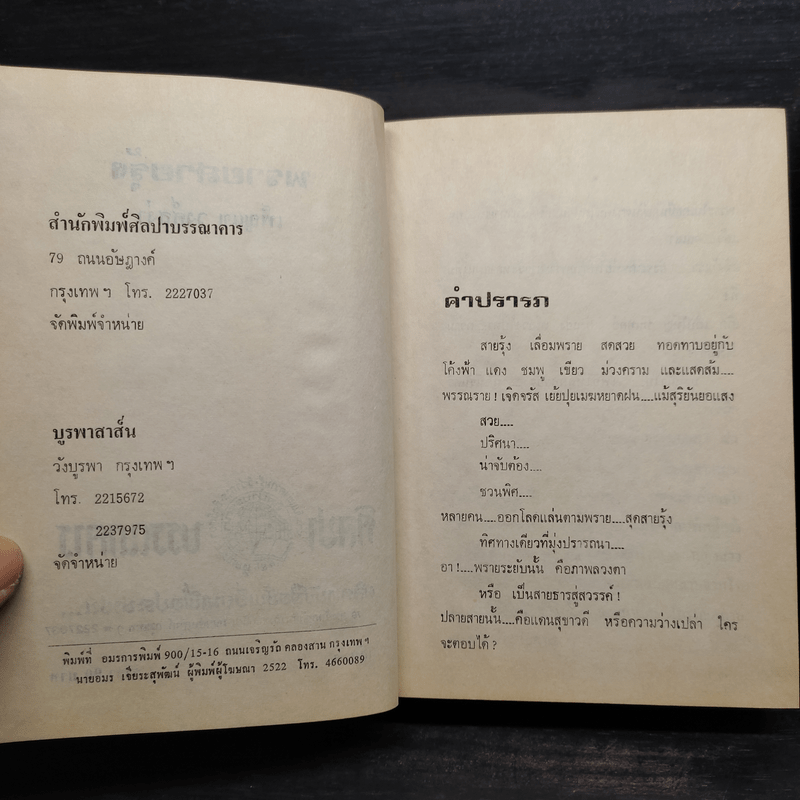 สำนักพิมพ์ศิลปาบรรณาคาร
79 ถนนอัษฎางค์
กรุงเทพ ฯ โทร. 2227037
จัดพิมพ์จำหน่าย
บูรพาสาส์น
วังบูรพา กรุงเทพ ฯ
โทร. 2215672
2237975
จัดจำหน่าย
พิมพ์ที่ อมรการพิมพ์ 900/15-16 ถนนเจริญรัถ คลองสาน กรุงเทพ ฯ
นายอมร เจียระสุพัฒน์ ผู้พิมพ์ผู้โฆษณา 2522 โทร. 4660089
คำปรารภ
สายรุ้ง เลื่อมพราย สดสวย ทอดทาบอยู่กับ
โค้งฟ้า แดง ชมพู เขียว ม่วงคราม และแสดส้ม....
พรรณราย! เจิดจรัส เย้ยปุยเมฆหยาดฝน....แม้สุริยันยอแสง
สวย....
ปริศนา....
น่าจับต้อง....
ชวนพิศ....
หลายคน....ออกโลดแล่นตามพราย....สุดสายรุ้ง
ทิศทางเดียวที่มุ่งปรารถนา....
อา!....พรายระยับนั้น คือภาพลวงตา
หรือ เป็นสายธารสู่สวรรค์!
ปลายสายนั้น....คือแดนสุขาวดี หรือความว่างเปล่า ใคร
จะตอบได้?